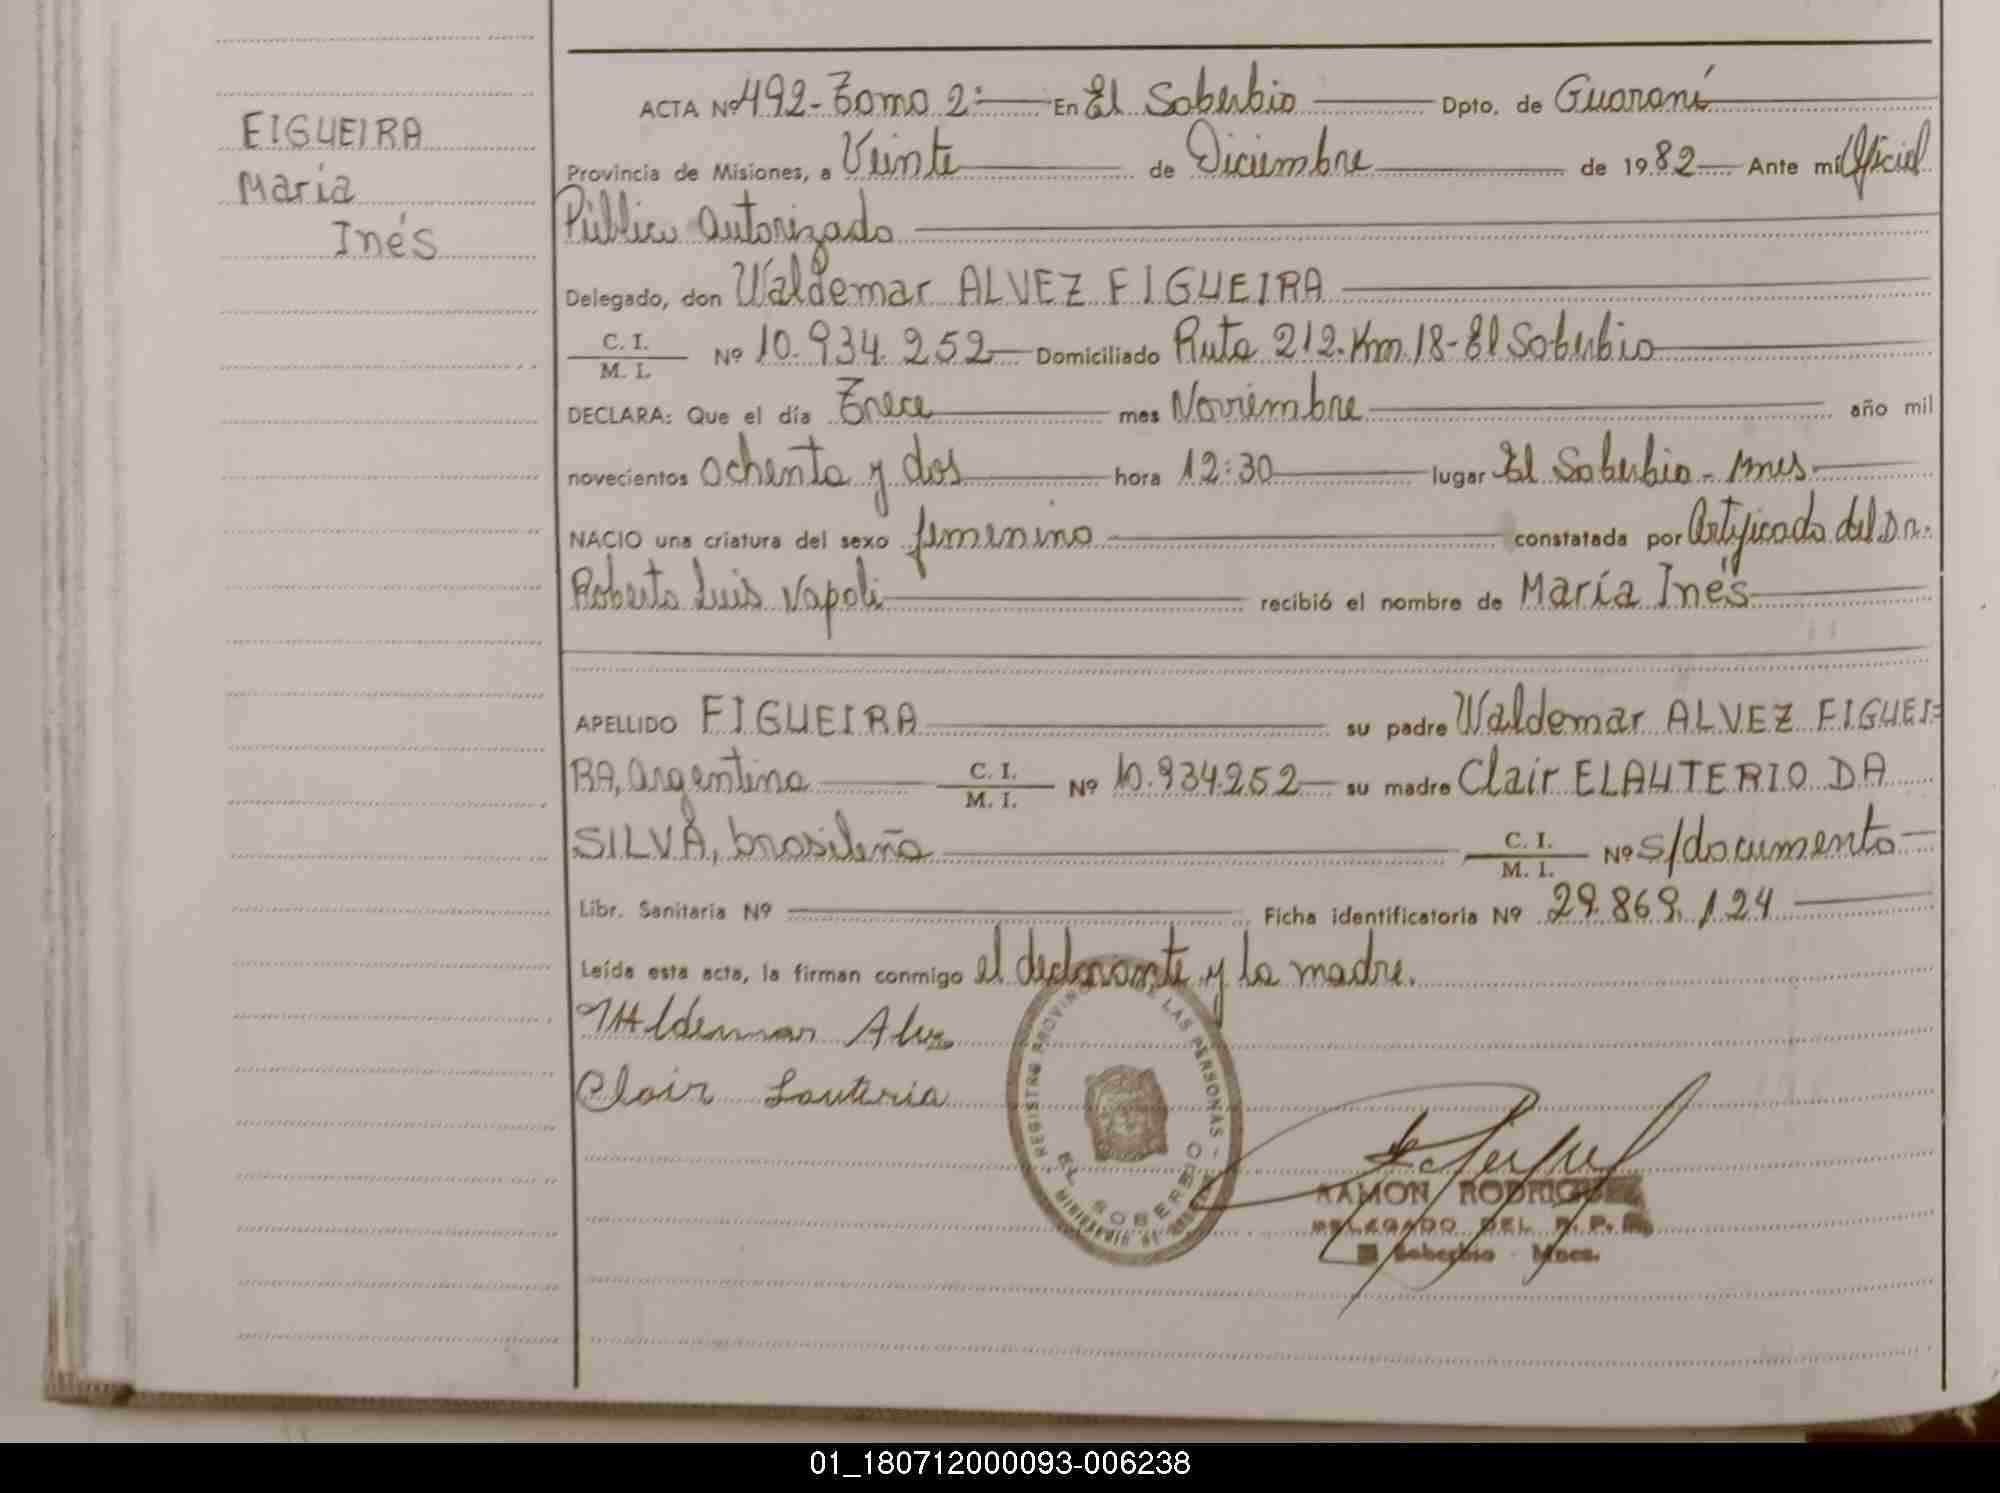 FIGUEIRA
María
Inés
ACTA Nº 492 - Tomo 2º En El Soberbio Dpto. de Guaraní
Provincia de Misiones, a Veinte de Diciembre de 1982 Ante mi Oficial
Público autorizado
Delegado, don Waldemar ALVEZ FIGUEIRA
C. I.
M. I.
Nº 10.934.252 Domiciliado Ruta 212. Km. 18 - El Soberbio
DECLARA: Que el día Trece mes Noviembre año mil
novecientos ochenta y dos hora 12:30 lugar El Soberbio - Mnes
NACIO una criatura del sexo femenino constatada por Certificado del Dr.
Roberto Luis Napoli recibió el nombre de María Inés
APELLIDO FIGUEIRA su padre Waldemar ALVEZ FIGUEI=
RA, argentino C. I. M. I. Nº 10.934.252 su madre Clair ELAUTERIO DA
SILVA, brasileña C. I. M. I. Nº s/documento
Libr. Sanitaria Nº Ficha identificatoria Nº 29.869.124
Leída esta acta, la firman conmigo el declarante y la madre.
Waldemar Alvez
Clair Lauteria
REGISTRO PROVINCIAL DE LAS PERSONAS
EL SOBERBIO
RAMON RODRIGUEZ
DELEGADO DEL R. P. P.
El Soberbio - Mnes.
01_180712000093-006238